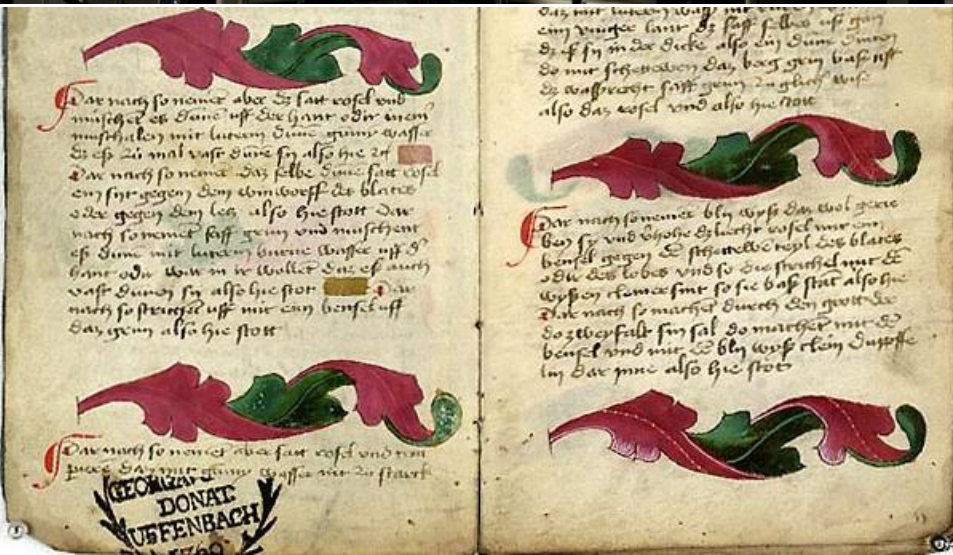 Dar nach so nemet aber dz satt rosel vnd
muschet es dunne uff der hant oder in ein
muschalen mit luterm dunne gummy wasser
dz eß zu mal vast dunne sy also hie ist
Dar nach so nemet daz selbe dunne satt rosel
ein syt gegen dem vmworff des blates
oder gegen dem also hie stott Dar
nach so nemet saff grun vnd muschent
eß dunne mit luterm burne wasser uff d
hant oder war in ir wollet daz eß auch
vast dunen sy also hie stot Dar
nach so strichet uff mit eim bensel uff
daz grun also hie stott
Dar nach so nemet aber satt rosel vnd tem
piere daz mit gummy wasser nit zu starck
GEORG
DONAT
UFFENBACH
daz mit luterm wasser
eim vinger lant dz saff selber uß gan
dz eß sy in der dicke also ein dunne dinten
do mit schettewen daz berg grun baß uff
dz wasserecht saff grun zu glich wise
also daz rosel vnd also hie stott
Dar nach so nemet bly wyß daz wol geris
ben sy vnd vhohe dz liecht rosel mit eim
bensel gegen dē schettewe teyl des blates
oder des lobes vnd so die strichel mit dē
wyssen cleiner sint so sie baß stat also hie
Dar nach so machet durch den grott der
do zweyfalt sin sal do machet mit dē
bensel vnd mit dē bly wyß clein dupffe
lin dar inne also hie stot